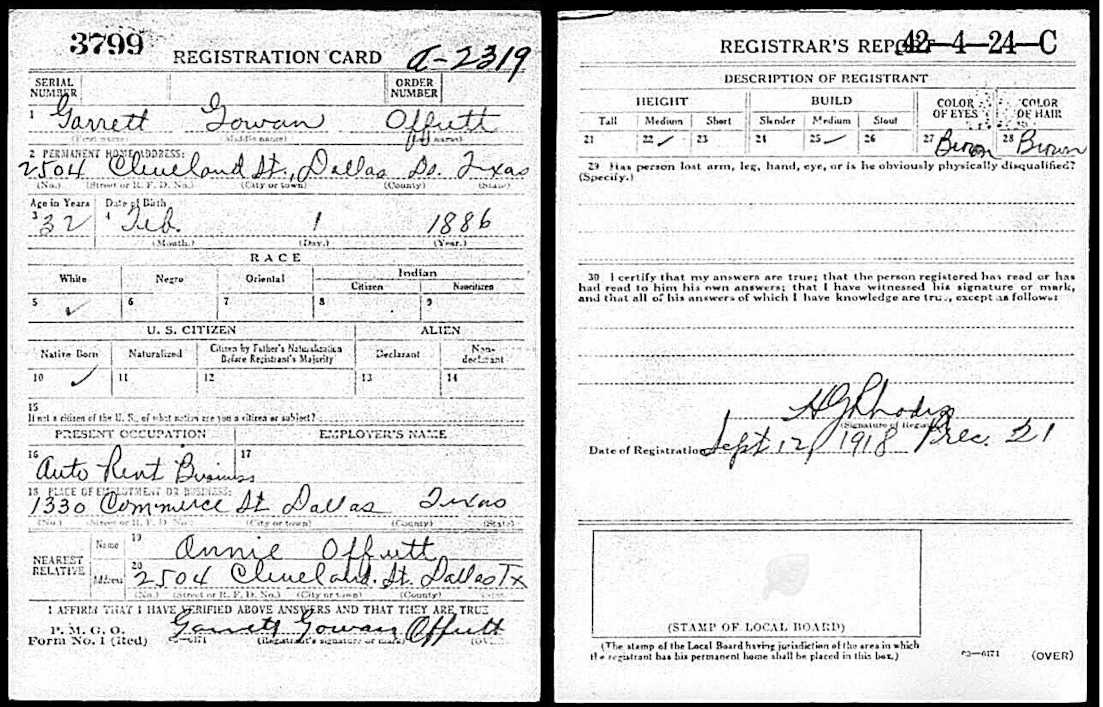 3799
REGISTRATION CARD A-2319
SERIAL NUMBER ORDER NUMBER
1 Garrett Gowan Offutt
(First name) (Middle name) (Last name)
2 PERMANENT HOME ADDRESS:
2504 Cleveland St., Dallas Ds. Texas
(No.) (Street or R. F. D. No.) (City or town) (County) (State)
Age in Years Date of Birth
3 32 4 Feb. 1 1886
(Month.) (Day.) (Year.)
RACE
White Negro Oriental Indian
Citizen Noncitizen
5 ✓ 6 7 8 9
U. S. CITIZEN ALIEN
Native Born Naturalized Citizen by Father's Naturalization Before Registrant's Majority Declarant Non-declarant
10 ✓ 11 12 13 14
15
If not a citizen of the U. S., of what nation are you a citizen or subject?
PRESENT OCCUPATION EMPLOYER'S NAME
16 Auto Rent Business 17
18 PLACE OF EMPLOYMENT OR BUSINESS:
1330 Commerce St Dallas Texas
(No.) (Street or R. F. D. No.) (City or town) (County) (State)
NEAREST RELATIVE Name 19 Annie Offutt
Address 20 2504 Cleveland. St. Dallas Tx
(No.) (Street or R. F. D. No.) (City or town) (County) (State)
I AFFIRM THAT I HAVE VERIFIED ABOVE ANSWERS AND THAT THEY ARE TRUE
P. M. G. O.
Form No. 1 (Red) Garrett Gowan Offutt
(Registrant's signature or mark) (OVER)
REGISTRAR'S REPORT 42-4-24-C
DESCRIPTION OF REGISTRANT
HEIGHT BUILD COLOR OF EYES COLOR OF HAIR
Tall Medium Short Slender Medium Stout
21 22 ✓ 23 24 25 ✓ 26 27 Brown 28 Brown
29 Has person lost arm, leg, hand, eye, or is he obviously physically disqualified?
(Specify.)
30 I certify that my answers are true; that the person registered has read or has
had read to him his own answers; that I have witnessed his signature or mark,
and that all of his answers of which I have knowledge are true, except as follows:
H G Rhodes
(Signature of Registrar)
Date of Registration Sept 12, 1918 Prec. 21
(STAMP OF LOCAL BOARD)
(The stamp of the Local Board having jurisdiction of the area in which
the registrant has his permanent home shall be placed in this box.)
03-6171 (OVER)